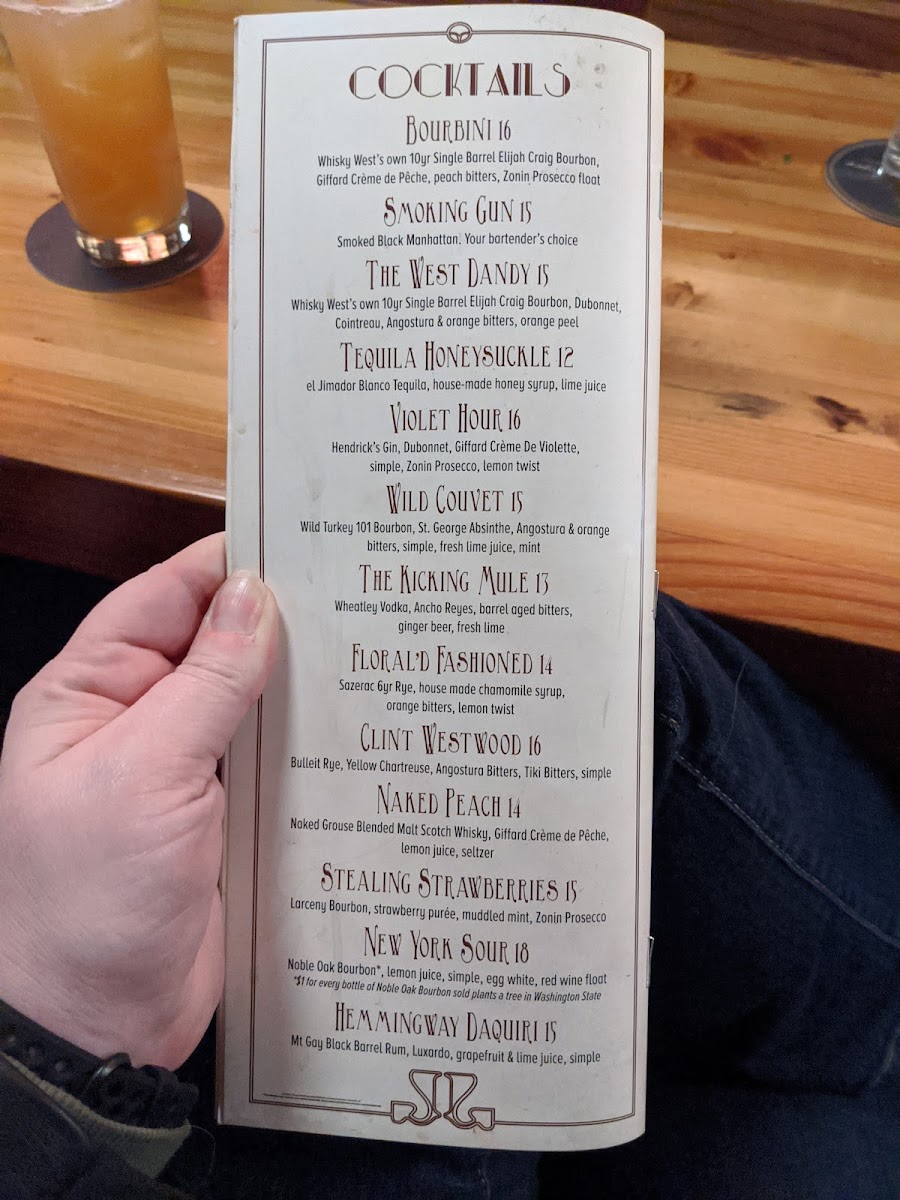 COCKTAILS
BOURBINI 16
Whisky West's own 10yr Single Barrel Elijah Craig Bourbon,
Giffard Crème de Pêche, peach bitters, Zonin Prosecco float
SMOKING GUN 15
Smoked Black Manhattan. Your bartender's choice
THE WEST DANDY 15
Whisky West's own 10yr Single Barrel Elijah Craig Bourbon, Dubonnet,
Cointreau, Angostura & orange bitters, orange peel
TEQUILA HONEYSUCKLE 12
el Jimador Blanco Tequila, house-made honey syrup, lime juice
VIOLET HOUR 16
Hendrick's Gin, Dubonnet, Giffard Crème De Violette,
simple, Zonin Prosecco, lemon twist
WILD COUVET 15
Wild Turkey 101 Bourbon, St. George Absinthe, Angostura & orange
bitters, simple, fresh lime juice, mint
THE KICKING MULE 13
Wheatley Vodka, Ancho Reyes, barrel aged bitters,
ginger beer, fresh lime
FLORAL'D FASHIONED 14
Sazerac 6yr Rye, house made chamomile syrup,
orange bitters, lemon twist
CLINT WESTWOOD 16
Bulleit Rye, Yellow Chartreuse, Angostura Bitters, Tiki Bitters, simple
NAKED PEACH 14
Naked Grouse Blended Malt Scotch Whisky, Giffard Crème de Pêche,
lemon juice, seltzer
STEALING STRAWBERRIES 15
Larceny Bourbon, strawberry purée, muddled mint, Zonin Prosecco
NEW YORK SOUR 18
Noble Oak Bourbon*, lemon juice, simple, egg white, red wine float
*$1 for every bottle of Noble Oak Bourbon sold plants a tree in Washington State
HEMMINGWAY DAQUIRI 15
Mt Gay Black Barrel Rum, Luxardo, grapefruit & lime juice, simple